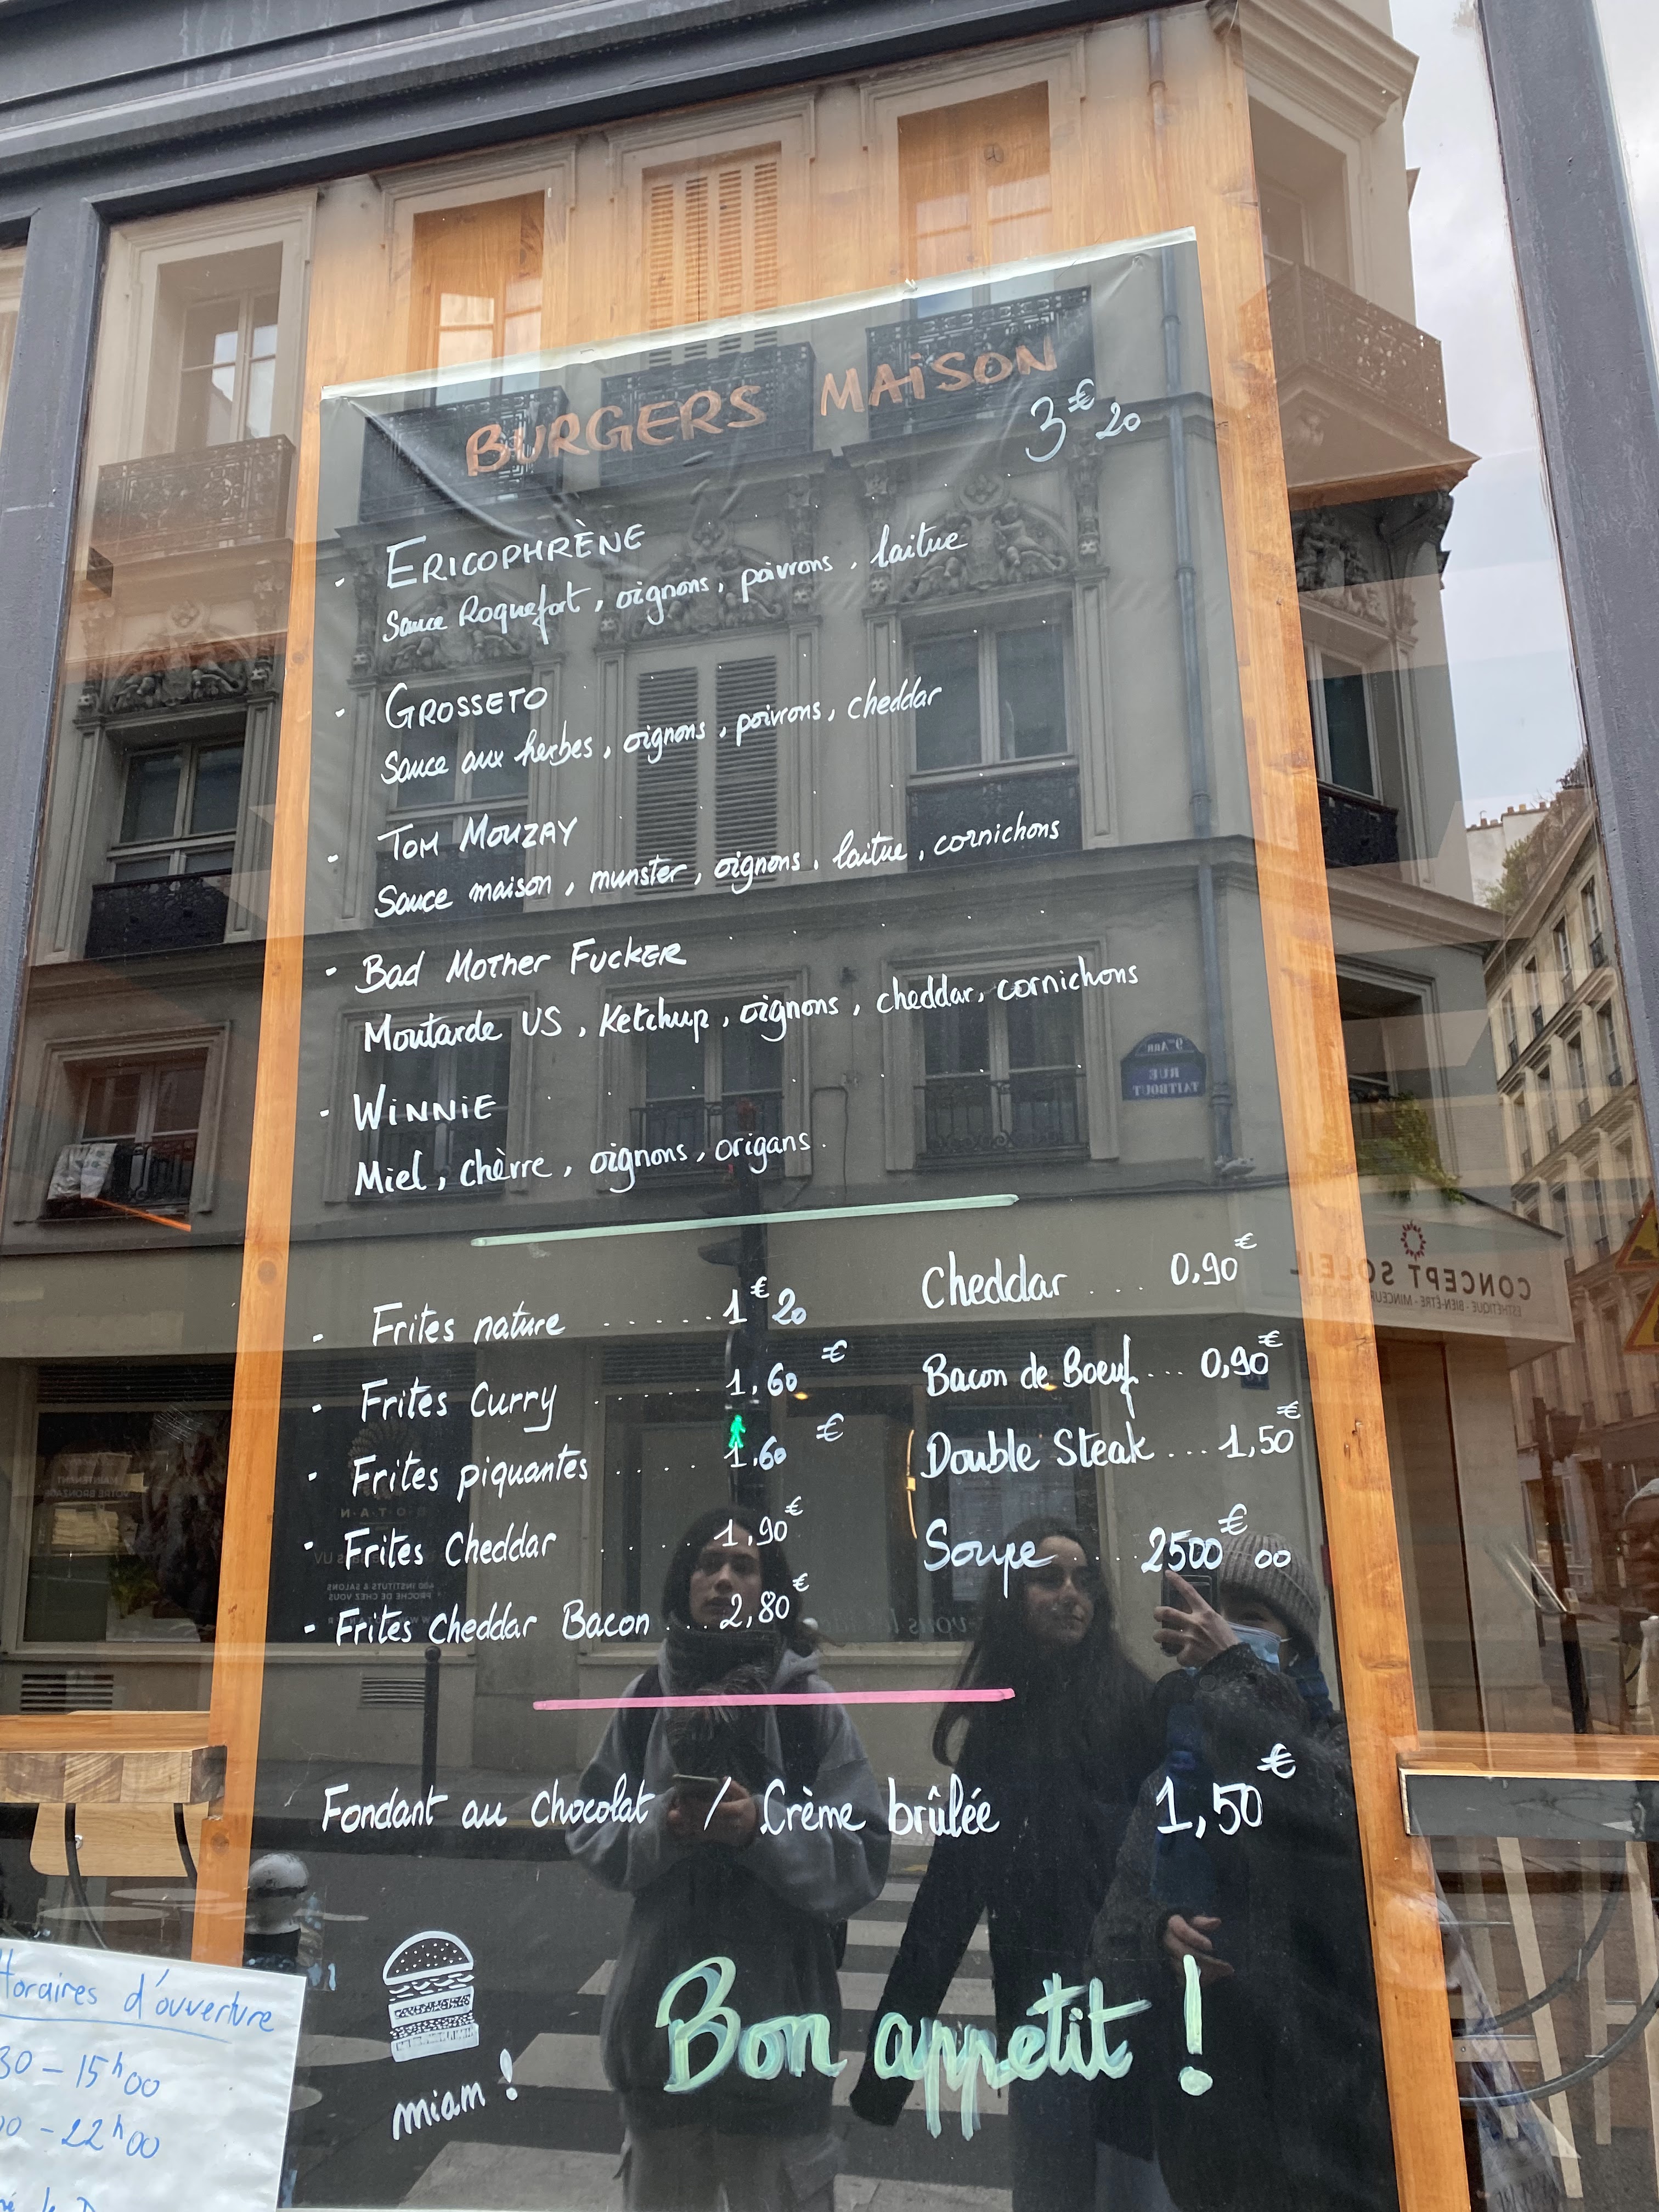 BURGERS MAISON
3€20
- ERICOPHRÈNE
Sauce Roquefort, oignons, poivrons, laitue
- GROSSETO
Sauce aux herbes, oignons, poivrons, cheddar
- TOM MOUZAY
Sauce maison, munster, oignons, laitue, cornichons
- Bad Mother Fucker
Moutarde US, Ketchup, oignons, cheddar, cornichons
- WiNNiE
Miel, chèvre, oignons, origans.
- Frites nature ...... 1€20
- Frites Curry ...... 1,60€
- Frites piquantes .... 1.60€
- Frites Cheddar .... 1,90€
- Frites cheddar Bacon ... 2,80€
Cheddar ... 0,90€
Bacon de Boeuf ... 0,90€
Double Steak ... 1,50€
Soupe .... 2500€00
Fondant au chocolat / Crème brûlée 1,50€
miam !
Bon appétit !
Horaires d'ouverture
30 - 15h00
00 - 22h00
9me ARR
RUE
TAITBOUT
CONCEPT SOLEIL
ESTHÉTIQUE - BIEN-ÊTRE - MINCEUR